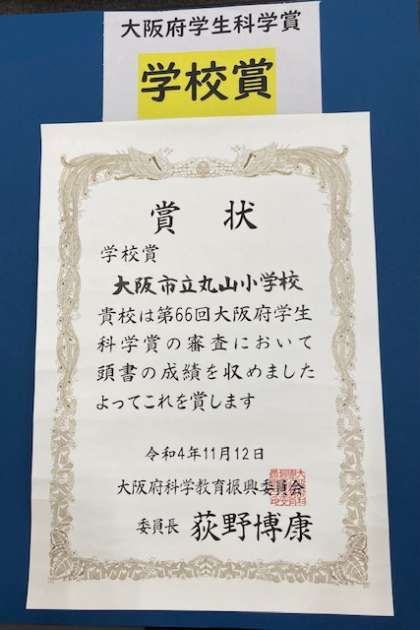 大阪府学生科学賞
学校賞
賞状
学校賞
大阪市立丸山小学校
貴校は第66回大阪府学生
科学賞の審査において
頭書の成績を収めました
よってこれを賞します
令和4年11月12日
大阪府科学教育振興委員会
委員長 荻野博康